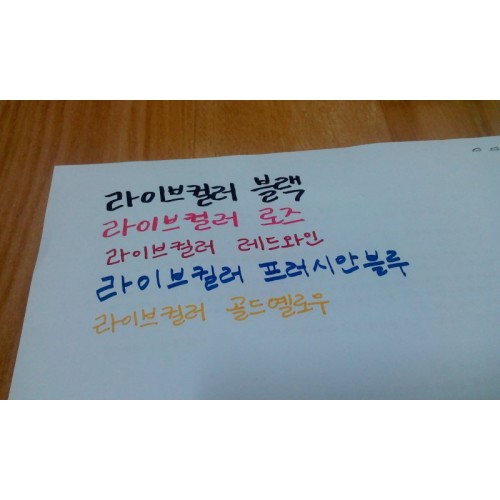 라이브컬러 블랙
라이브컬러 로즈
라이브컬러 레드와인
라이브컬러 프러시안블루
라이브컬러 골드옐로우